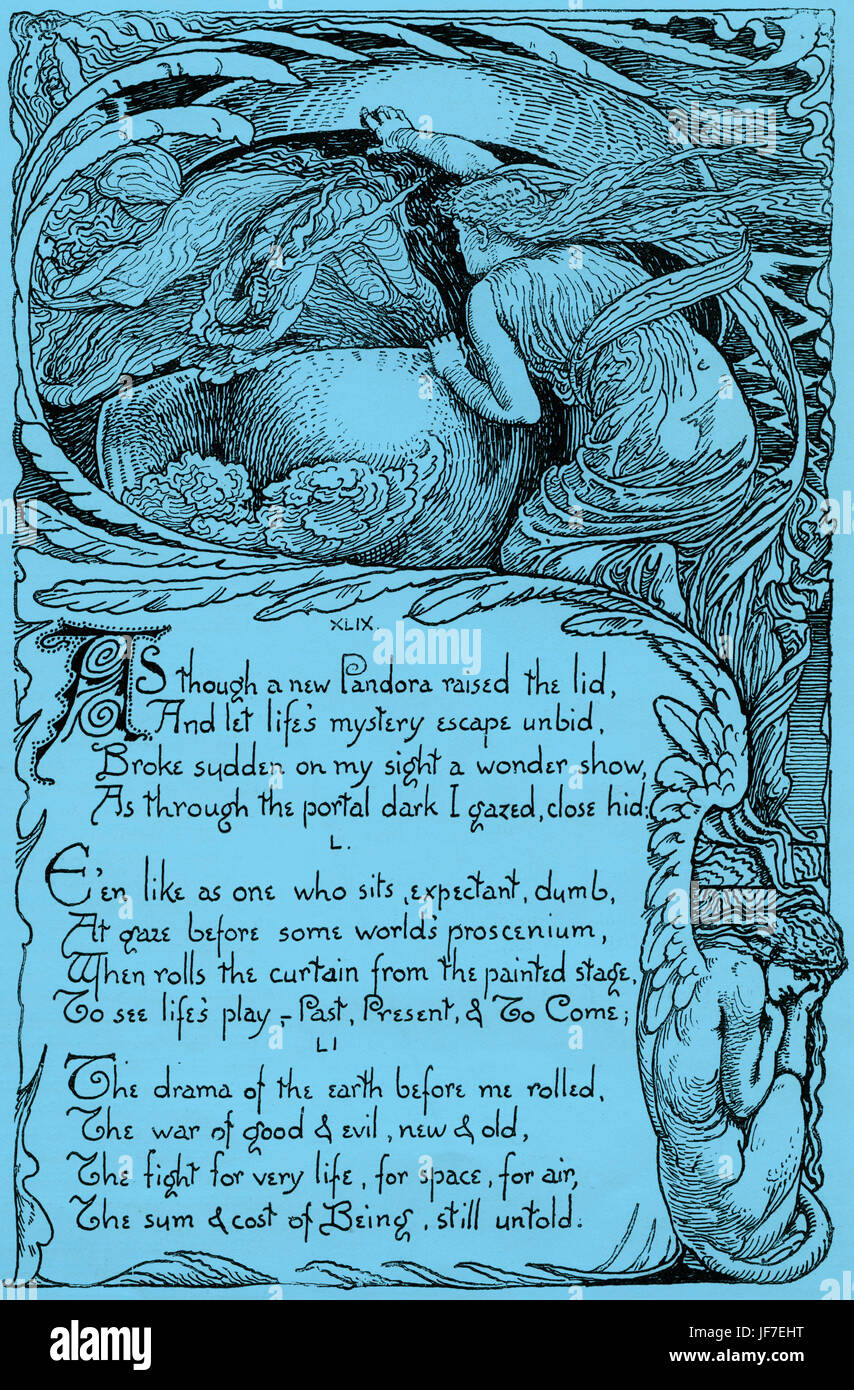 XLIX.
As though a new Pandora raised the lid,
And let life's mystery escape unbid,
Broke sudden on my sight a wonder show,
As through the portal dark I gazed, close hid:
L.
E'en like as one who sits, expectant, dumb,
At gaze before some world's proscenium,
When rolls the curtain from the painted stage,
To see life's play,- Past, Present, & To Come;
LI
The drama of the earth before me rolled,
The war of good & evil, new & old,
The fight for very life, for space, for air,
The sum & cost of Being, still untold.
alamy stock photo
a
alamy
a
a
a
alamy
Image ID: JF7EHT
www.alamy.com